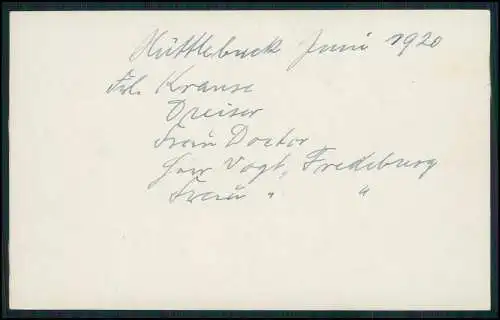 Hüttlebuck Juni 1920
Frl. Krause
Dreiser
Frau Doctor
Herr Vogt, Fredeburg
Frau " "